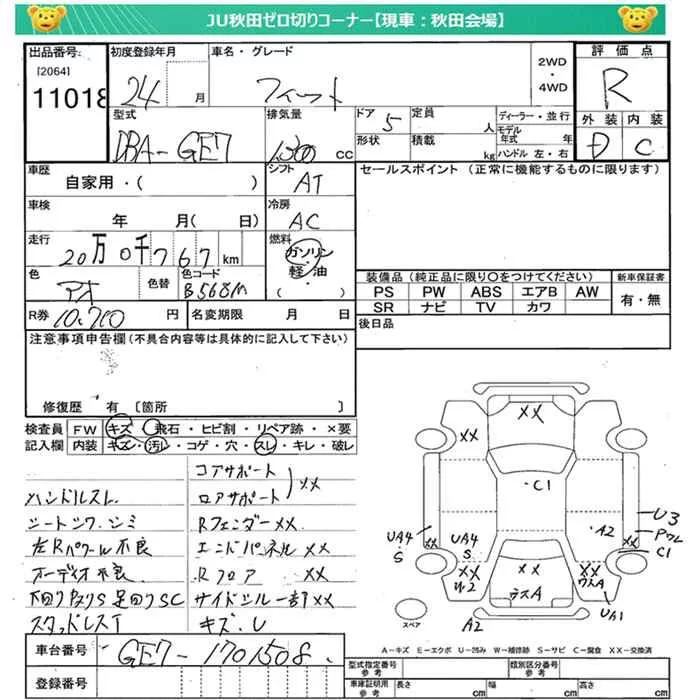 JU秋田ゼロ切りコーナー【現車：秋田会場】
出品番号
[2064]
11018
初度登録年月
24 月
車名・グレード
フィット
2WD
・
4WD
評価点
R
外装 内装
D C
型式
DBA-GE7
排気量
1300 cc
ドア
5
形状
定員
人
積載
kg
ディーラー・並行
モデル年式 年
ハンドル 左・右
車歴
自家用・( )
シフト
AT
セールスポイント (正常に機能するものに限ります)
車検
年 月( 日)
冷房
AC
走行
20万0千767km
燃料
ガソリン
・
軽油
( )
色
アオ
色替
色コード
B568M
装備品 (純正品に限り○をつけてください)
PS PW ABS エアB AW
SR ナビ TV カワ
新車保証書
有・無
R券 10,710 円
名変期限 月 日
後日品
注意事項申告欄 (不具合内容等は具体的に記入して下さい)
修復歴 有 〔箇所 〕
検査員記入欄
FW キズ・飛石・ヒビ割・リペア跡・×要
内装 キズ・汚レ・コゲ・穴・スレ・キレ・破レ
ハンドルスレ
シートシワ、シミ
左Rパワール不良
オーディオ不良
下回りS 足回りSC
スタッドレスT
コアサポート
ロアサポート XX
Rフェンダー XX
エンドパネル XX
Rフロア XX
サイドシル一部XX
キズ、U
XX
XX
C1
UA4
S
XX
UA4
S
XX
W2
XX
ラスA
A2
A2
U3
PワレC1
XX
XX
ワスA
UA1
スペア
A-キズ E-エクボ U-凹み W-補修跡 S-サビ C-腐食 XX-交換済
車台番号
GE7-1701508
登録番号
型式指定番号
参考
類別区分番号
参考
車庫証明用
参考
長さ cm 幅 cm 高さ cm